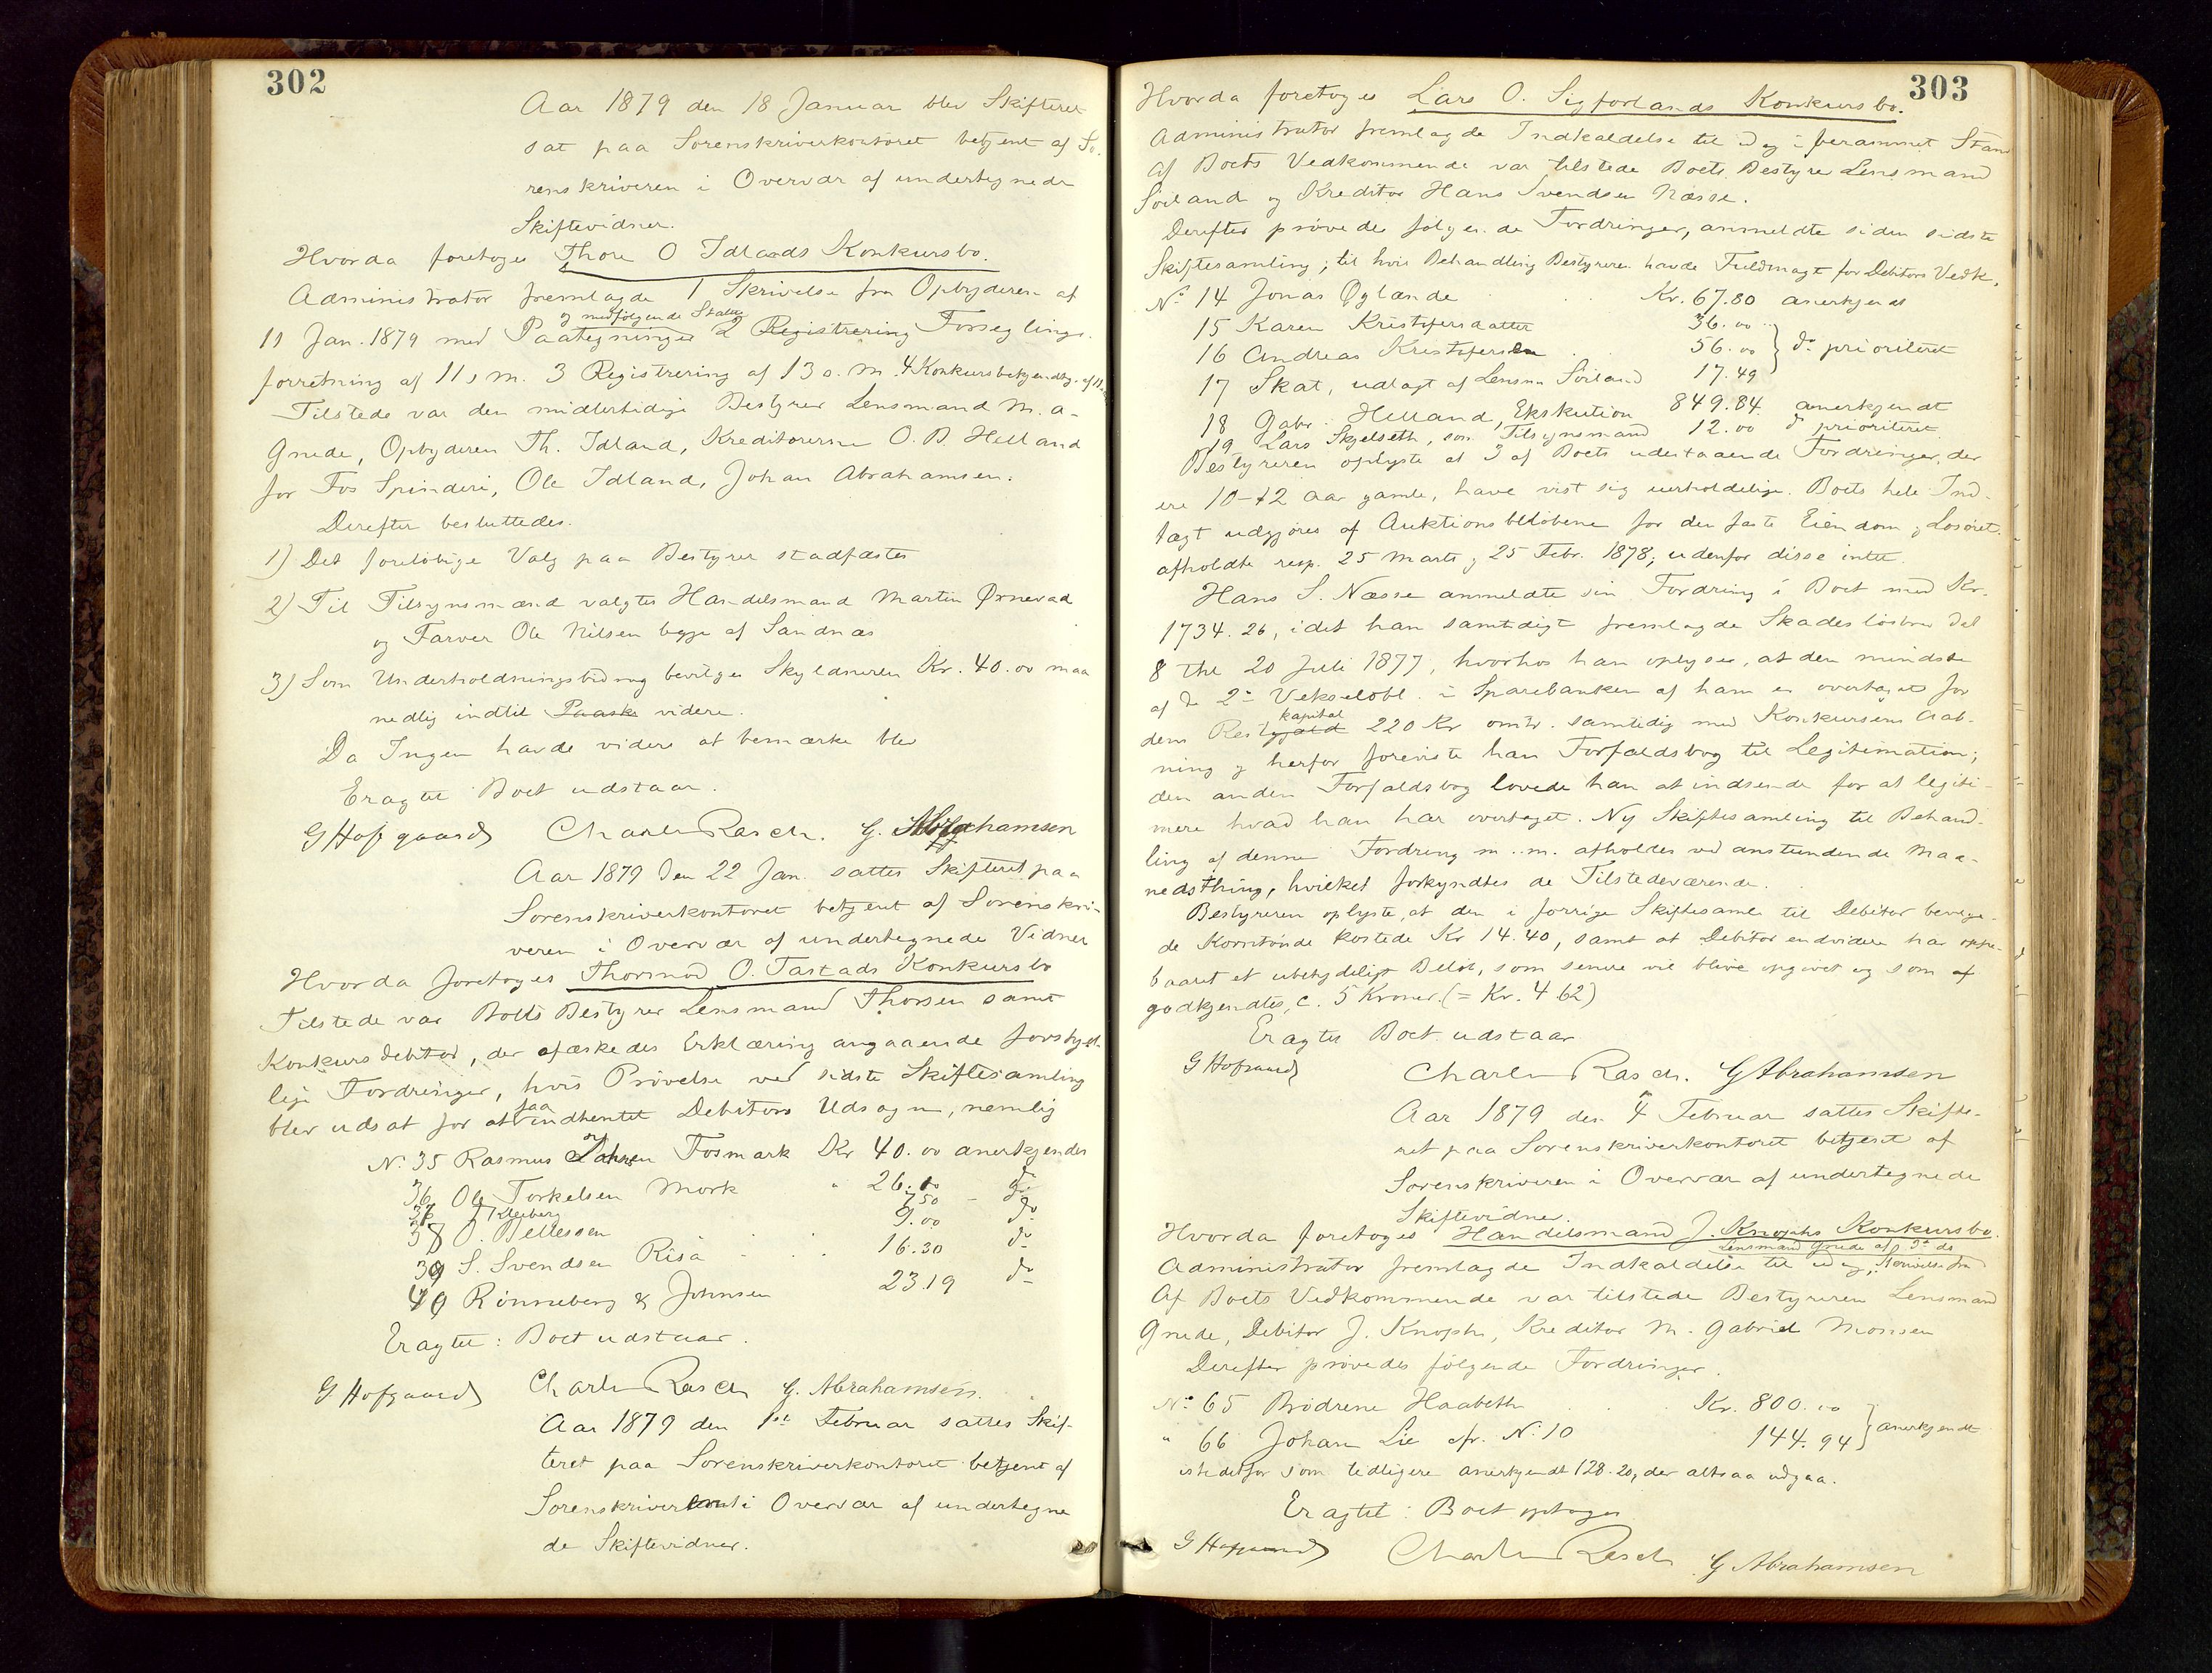 302
Aar 1879 den 18 Januar blev Skifteret
sat paa Sorenskriverkontoret betjent af So-
renskriveren i Overvær af undertegnede
Skiftevidner.
Hvorda foretoges Thore O Idlands Konkursbo.
Administrator fremlagde 1 Skrivelse fra Opbyderen af
og medfølgende
11 Jan. 1879 med Paategninger 2 Registrering Forseglings-
forretning af 11 s. M. 3 Registrering af 13 s. M. 4 Konkursbekjendtg. af
Tilstede var den midlertidige Bestyrer Lensmand M. A-
Gnede, Opbyderen Th. Idland, Kreditorerne O. B. Helland
for Fos Spinderi, Ole Idland, Johan Abrahamsen.
Derefter besluttedes.
1) Det foreløbige Valg paa Bestyrer stadfæstes
2) Til Tilsynsmænd valgtes Handelsmand Martin Ørnevad
og Farver Ole Nilsen begge af Sandnæs
3) Som Underholdningsbidrag bevilges Skyldneren Kr. 40.00 maa
nedlig indtil Paaske videre.
Da Ingen havde videre at bemærke blev
Eragtet Boet udstaar.
G Hofgaard Charles Rasch. G. Abrahamsen
Aar 1879 den 22 Jan. sattes Skifteret paa
Sorenskriverkontoret betjent af Sorenskri-
veren i Overvær af undertegnede Vidner
Hvorda foretoges Thormod O. Tastads Konkursbo
Tilstede var Boets Bestyrer Lensmand Thorsen samt
Konkursdebitor, der afæskedes Erklæring angaaende forskjel-
lige Fordringer, hvis Prøvelse ved sidste Skiftesamling
faa
blev udsat for at indhentet Debitors Udsagn, nemlig
No 35 Rasmus Fosmark Kr 40.00 anerkjendes
36 Ole Torkelsen Mork " 26.00 do
37 Kleiberg 7.50 - do
38 O. Bellesen 9.00 do
39 S. Svendsen Riså 16.30 do
40 Rønneberg & Johnsen 23.19 do
Eragtet: Boet udstaar.
G. Hofgaard Charles Rasch G. Abrahamsen.
Aar 1879 den 1ste Februar sattes Skif-
teret paa Sorenskriverkontoret betjent af
Sorenskriveren i Overvær af undertegne
de Skiftevidner.
303
Hvorda foretoges Lars O. Sigforlands Konkursbo.
Administrator fremlagde Indkaldelse til idag i forammet Stand
Af Boets Vedkommende var tilstede Boets Bestyrer Lensmand
Soiland og Kreditor Hans Svendsen Næsse.
Derefter prøvedes følgende Fordringer, anmeldte siden sidste
Skiftesamling; til hvis Behandling Bestyreren havde Fuldmagt for Debitors Vedk.
No 14 Jonas Øglænde Kr. 67.80 anerkjendt
15 Karen Kristofersdatter 36.00
16 Andreas Kristofersen 56.00 } do prioriteret
17 Skat, udlagt af Lensm Soiland 17.49
18 Gabr. Helland, Ekskution 849.84 anerkjendt
19 Lars Skjelseth, som Tilsynsmand 12.00 do prioriteret
Bestyreren oplyste at 3 af Boets udestaaende Fordringer, der
ere 10-12 Aar gamle, have vist sig uerholdelige. Boets hele Ind-
tægt udgjøres af Auktionsbeløbene for den faste Eiendom og Løsøret.
afholdte resp. 25 Marts og 25 Febr. 1878; udenfor disse intet.
Hans S. Næsse anmeldte sin Fordring i Boet med Kr.
1734.26, idet han samtidigt fremlagde Skadesløsbrev dat
8 thl 20 Juli 1877, hvorhos han oplyser, at den mindste
af de 2de Vekselobl. i Sparebanken af ham er overtaget for
kapital
dens Restgjæld 220 Kr omtr. samtidig med Konkursens Aab-
ning og herfor foreviste han Forfaldsbog til Legitimation;
den anden Forfaldsbog lovede han at indsende for at legiti-
mere hvad han har overtaget. Ny Skiftesamling til Behand-
ling af denne Fordring m. m. afholdes ved anstundende Maa-
nedsthing, hvilket forkyndtes de Tilstedeværende.
Bestyreren oplyste, at den i forrige Skiftesaml. til Debitor bevilge-
de Korntønde kostede Kr 14.40, samt at Debitor endvidere har oppe-
baaret et ubetydeligt Beløb, som senere vil blive opgivet og som af
godkjendtes, c. 5 Kroner. (= Kr. 4 62)
Eragtes Boet udstaar
G Hofgaard Charles Rasch. G Abrahamsen
Aar 1879 den 4 Februar sattes Skifte-
ret paa Sorenskriverkontoret betjent af
Sorenskriveren i Overvær af undertegnede
Skiftevidner.
Hvorda foretoges Handelsmand J. Knophs Konkursbo.
Lensmand Gnede af do ds
Administrator fremlagde Indkaldelse til idag, Skrivelse fra
Af Boets Vedkommende var tilstede Bestyreren Lensmand
Gnede, Debitor J. Knoph, Kreditor M. Gabriel Monsen
Derefter prøvedes følgende Fordringer.
No 65 Brødrene Haabeth Kr. 800.00
" 66 Johan Lie cfr. No 10 144.94 } anerkjendt
istedetfor som tidligere anerkjendt 128.20, der altsaa udgaa.
Eragtet: Boet optages
G Hofgaard Charles Rasch G Abrahamsen